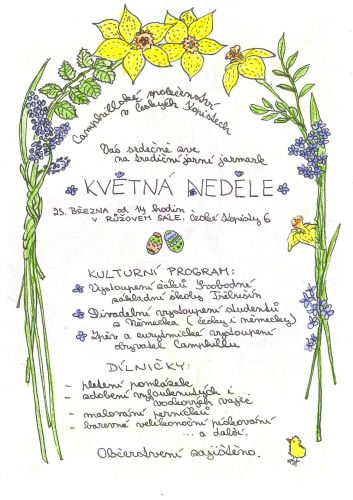 Camphillské společenství
v Českých Kopistech
Vás srdečně zve
na tradiční jarní jarmark
KVĚTNÁ NEDĚLE
25. BŘEZNA od 14 hodin
V RŮŽOVÉM SÁLE, České Kopisty 6
KULTURNÍ PROGRAM:
Vystoupení žáků Svobodné
základní školy Třebušín
Divadelní vystoupení studentů
z Německa (česky i německy)
Zpěv a eurytmické vystoupení
obyvatel Camphillu
DÍLNIČKY:
- pletení pomlázek
- zdobení vyfouknutých i
voskových vajec
- malování perníčků
- barevné velikonoční pískování
... a další.
Občerstvení zajištěno.